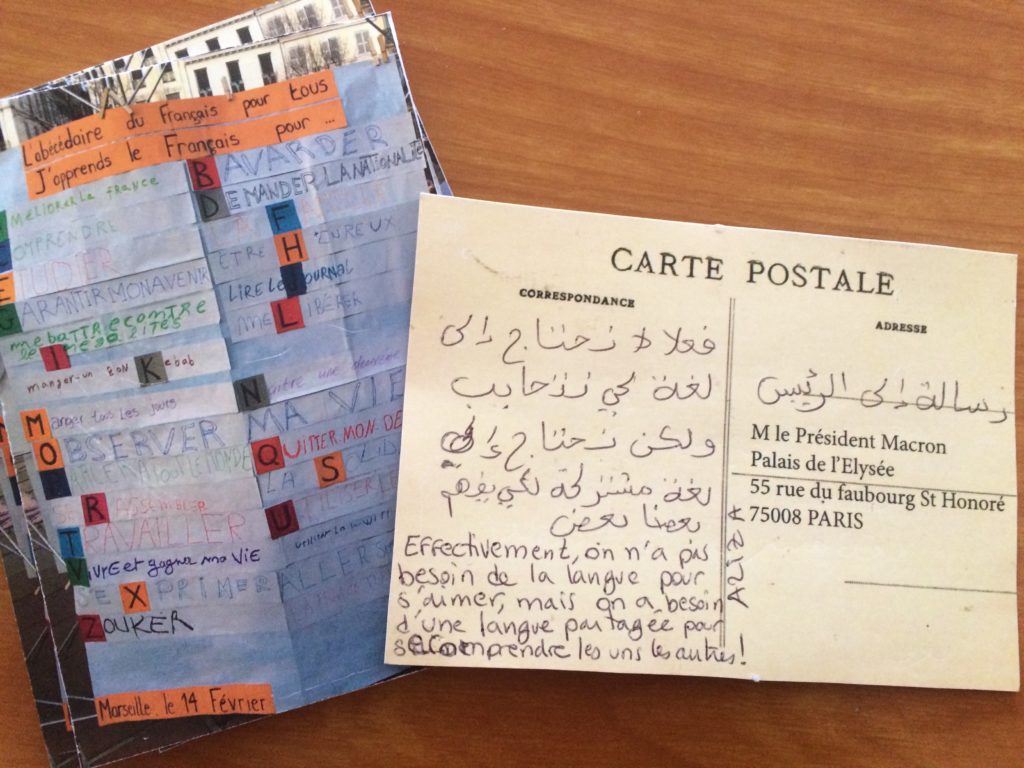 L'abécédaire du Français pour tous
J'apprends le Français pour ...
BAVARDER
AMELIORER LA FRANCE
DEMANDER LA NATIONALITÉ
COMPRENDRE
ETUDIER
ETRE HEUREUX
GARANTIR MON AVENIR
LIRE LE JOURNAL
me battre contre
les inégalités
ME LIBÉRER
manger un bon Kebab
Manger tous les jours
Naitre une deuxième
OBSERVER MA VIE
QUITTER MON
RASSEMBLER
TRAVAILLER
VIVRE et gagner ma ViE
S'EXPRIMER
ALLER
ZOUKER
Marseille le 14 Février
CARTE POSTALE
CORRESPONDANCE
فعلا لا نحتاج إلى
لغة لكي نتحابب
ولكن نحتاج إلى
لغة مشتركة لكي يفهم
بعضنا بعض
Effectivement, on n'a pas
besoin de la langue pour
s'aimer, mais on a besoin
d'une langue partagée pour
se comprendre les uns les autres!
ADRESSE
رسالة إلى الرئيس
M le Président Macron
Palais de l'Elysée
55 rue du faubourg St Honoré
75008 PARIS